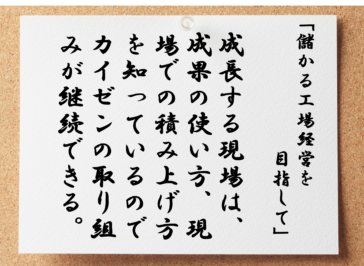 「儲かる工場経営を
目指して」
成長する現場は、
成果の使い方、現
場での積み上げ方
を知っているので
カイゼンの取り組
みが継続できる。